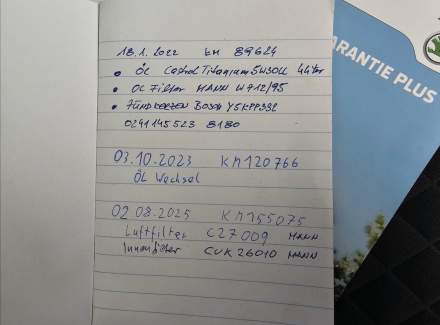 18.1.2022 KM 89624
• Öl Castrol Titanium 5W30LL 4 Liter
• Öl Filter MANN W712/95
• Zündkerzen Bosch Y5KPP332
0241145523 8180
03.10.2023 KM 120766
ÖL Wechsel
02 08.2025 KM 155075
Luftfilter C27009 MANN
Innenfilter CUK 26010 MANN
ARANTIE PLUS